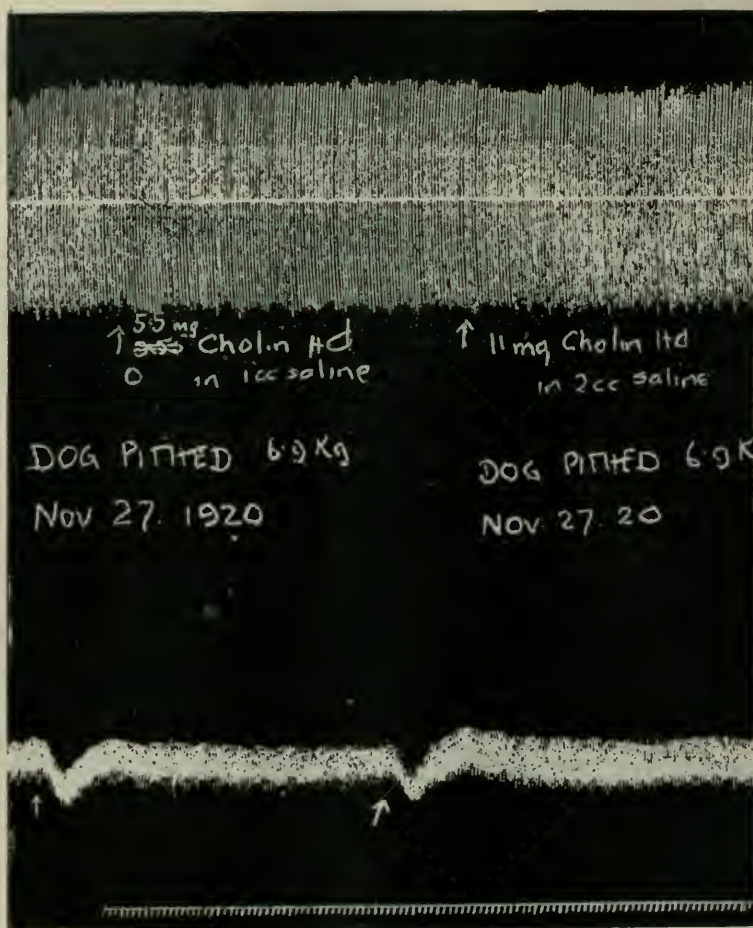 ↑ 5.5 mg Cholin Hd
0 in 1cc saline
↑ 11 mg Cholin Hd
in 2cc saline
DOG PITHED 6.9 Kg
Nov 27. 1920
DOG PITHED 6.9 K
Nov 27. 20